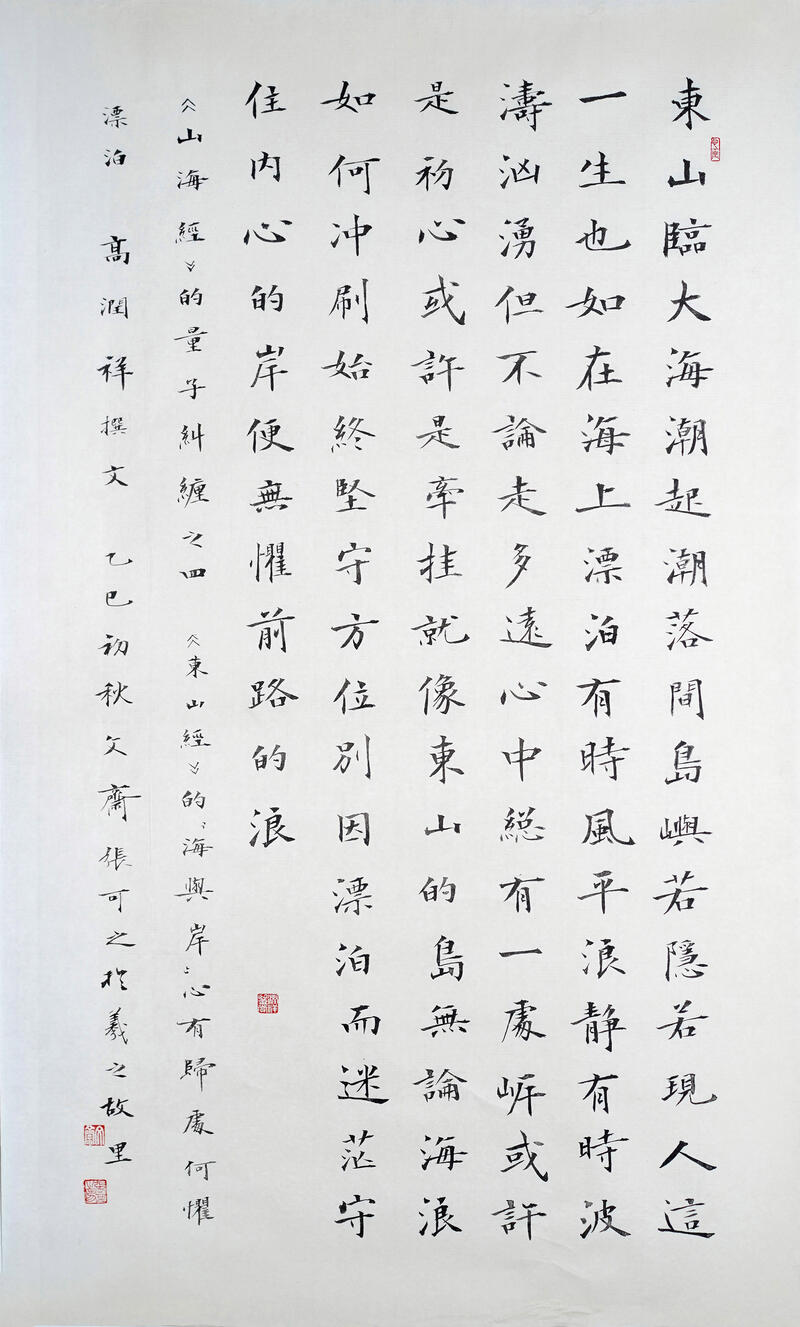 東山臨大海潮起潮落間島嶼若隱若現人這
一生也如在海上漂泊有時風平浪靜有時波
濤汹湧但不論走多遠心中總有一處岸或許
是初心或許是牽挂就像東山的島無論海浪
如何冲刷始終堅守方位別因漂泊而迷茫守
住内心的岸便無懼前路的浪
《山海經》的量子糾纏之四 《東山經》的“海與岸”心有歸處何懼
漂泊 高潤祥撰文 乙巳初秋文齋張可之於羲之故里